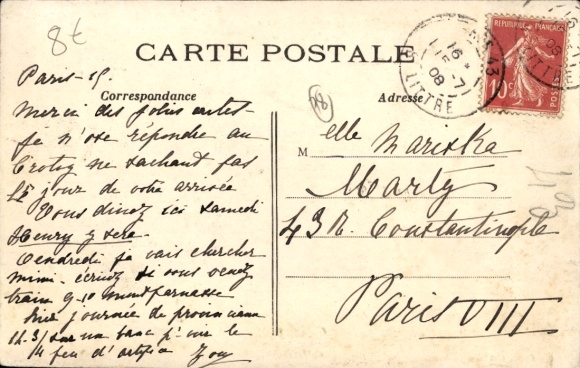 8€
CARTE POSTALE
Correspondance
Adresse
RÉPUBLIQUE FRANÇAISE
POSTES
10c
PARIS 43
16 -7
08
R. LITTRÉ
Paris - 15.
Merci des jolies cartes -
je n'ose répondre au
Crotoy ne sachant pas
le jour de votre arrivée
Vous dinez ici samedi
Henry y sera.
Vendredi je vais chercher
Mimi - écrivez si vous venez
train 9.10 montparnasse
hier journée de
sur un banc pr voir le
14 feu d'artifice
Melle Mariska
Marty
43 R. Constantinople
Paris VIII